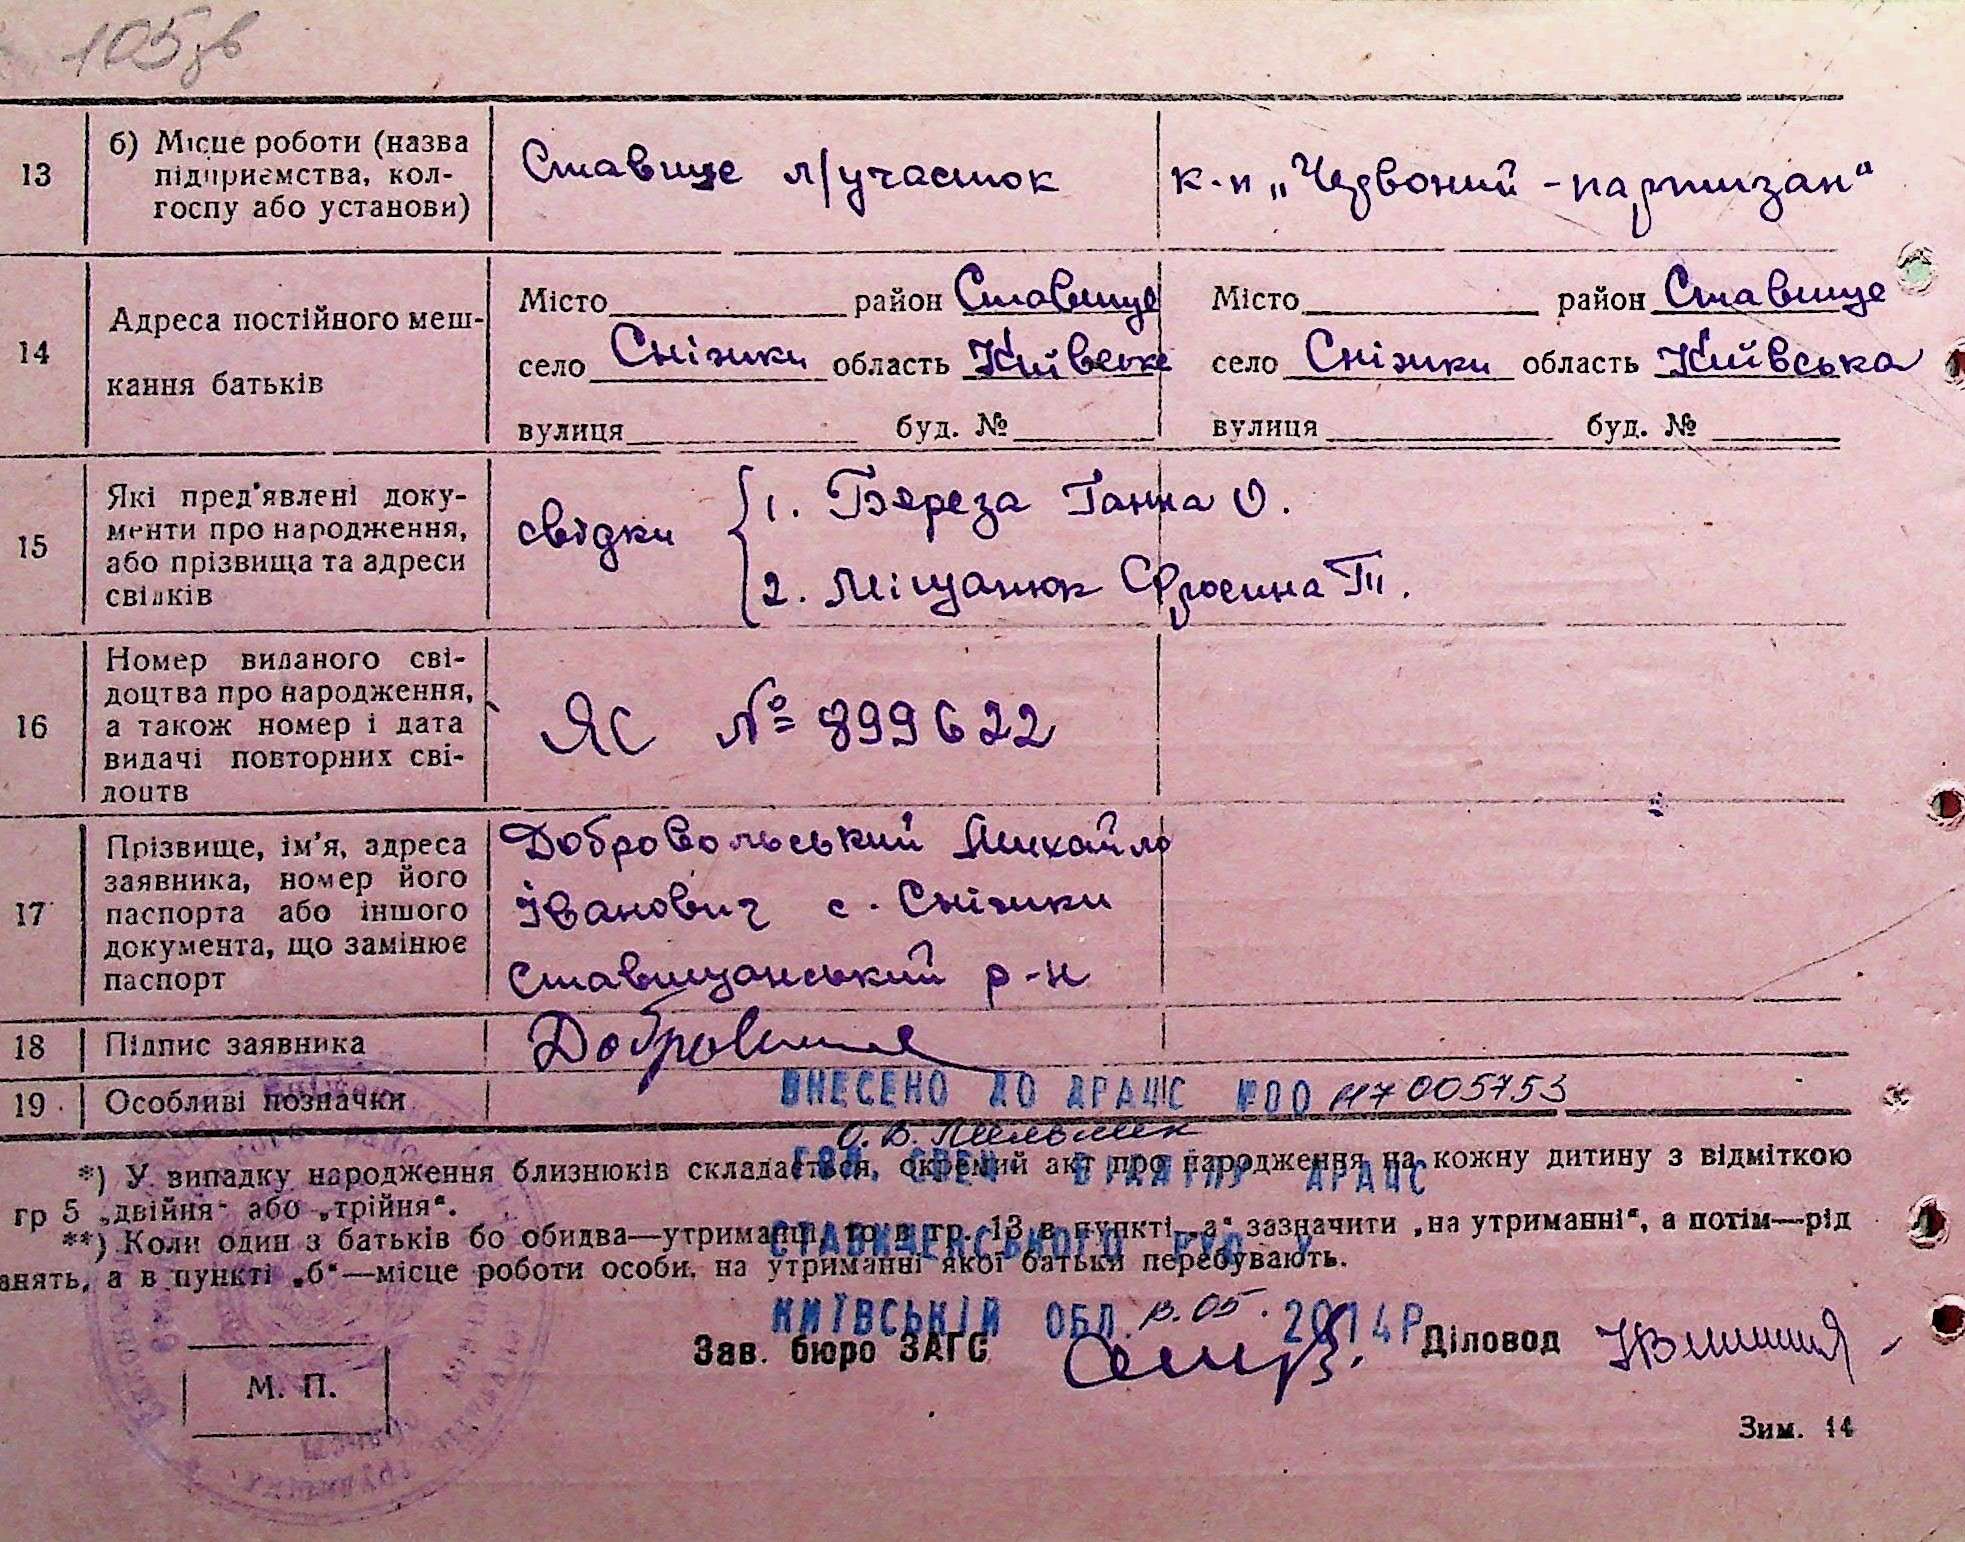 105 зв
13
б) Місце роботи (назва
підприємства, кол-
госпу або установи)
Ставище л/участок
к-п „Червоний - партизан“
14
Адреса постійного меш-
кання батьків
Місто район Ставище
село Сніжки область Київське
вулиця буд. №
Місто район Ставище
село Сніжки область Київська
вулиця буд. №
15
Які пред'явлені доку-
менти про народження,
або прізвища та адреси
свідків
свідки
1. Береза Ганна О.
2. Міщанюк Єфросина Т.
16
Номер виданого сві-
доцтва про народження,
а також номер і дата
видачі повторних сві-
доцтв
ЯС № 899622
17
Прізвище, ім'я, адреса
заявника, номер його
паспорта або іншого
документа, що замінює
паспорт
Добровольський Михайло
Іванович с. Сніжки
Ставищанський р-н
18
Підпис заявника
19
Особливі позначки
ВНЕСЕНО ДО ДРАЦС №00 117 005753
О. В.
ГОЛ. СПЕЦ. ВІДДІЛУ ДРАЦС
*) У випадку народження близнюків складається, окремий акт про народження на кожну дитину з відміткою
гр 5 „двійня“ або „трійня“.
**) Коли один з батьків бо обидва—утриманці, то в гр. 13 в пункті „а“ зазначити „на утриманні“, а потім—рід
анять, а в пункті „б“—місце роботи особи, на утриманні якої батьки перебувають.
СТАВИЩЕНСЬКОГО РУЮ У
КИЇВСЬКІЙ ОБЛ. 05. 2014Р
Зав. бюро ЗАГС
Діловод
М. П.
Зим. 14